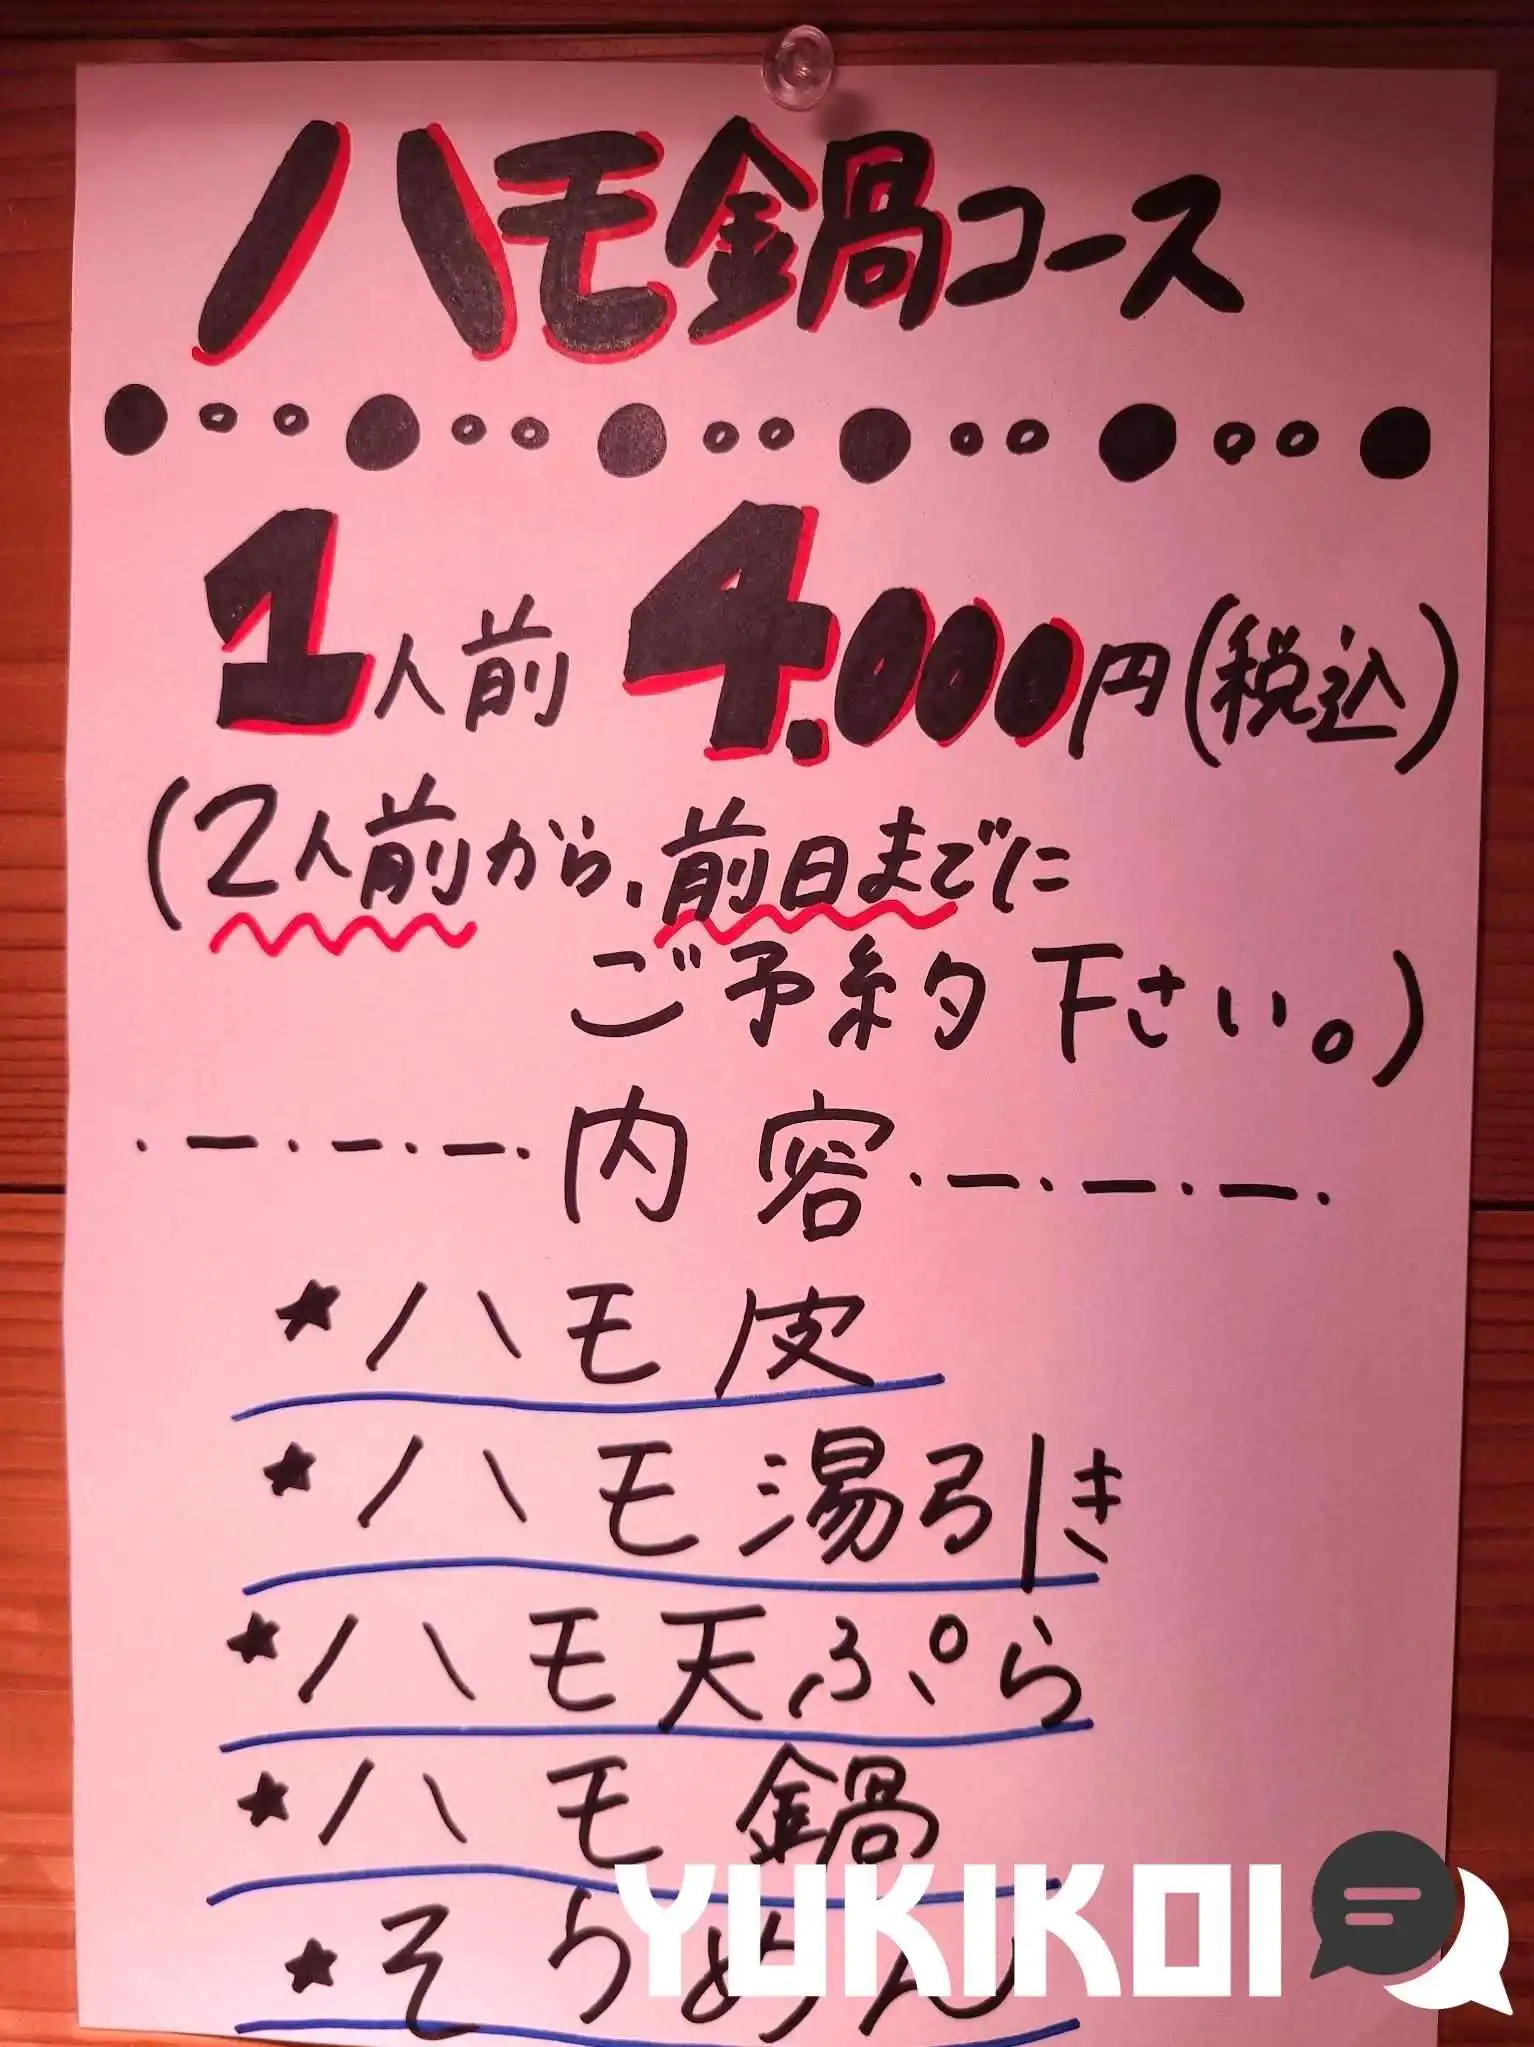 ハモ鍋コース
1人前 4.000円(税込)
(2人前から、前日までに
ご予約下さい。)
内容
★ハモ皮
★ハモ湯引き
★ハモ天ぷら
★ハモ鍋
★そうめん
YUKIKOI